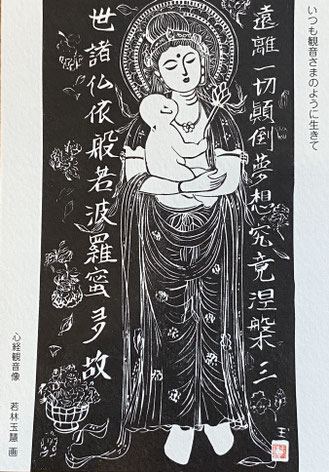 いつも観音さまのように生きて
遠離一切顛倒夢想究竟涅槃三
世諸仏依般若波羅蜜多故
心経観音像　若林玉慧 画